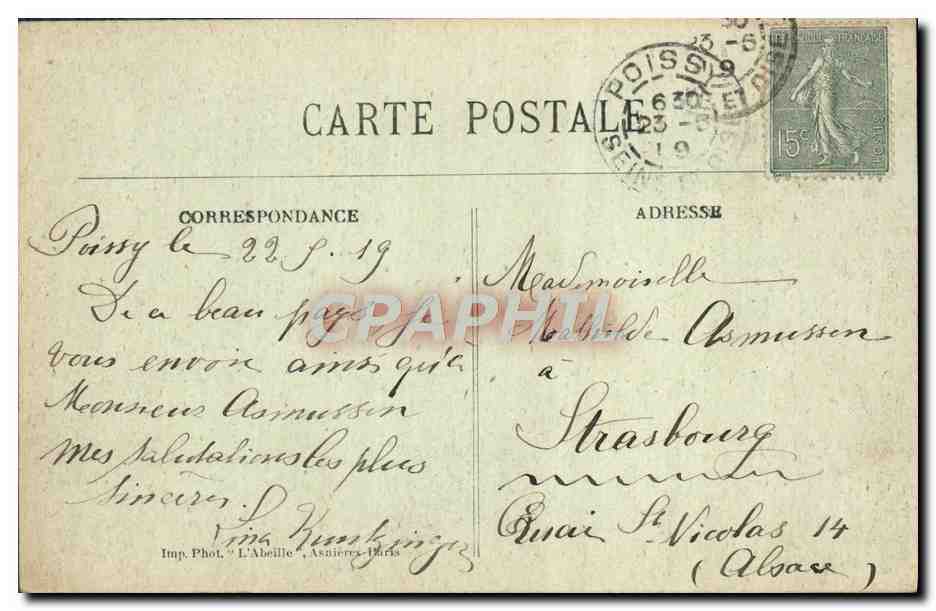 CARTE POSTALE
POISSY
6 30
23 - 6
19
SEINE ET OISE
23 - 6
ET OISE
REPUBLIQUE FRANÇAISE
15c
POSTES
CORRESPONDANCE
Poissy le 22 5. 19
De ce beau pays je
vous envoie ainsi qu'à
Monsieur Asmussen
mes salutations les plus
sincères.
Lina Kuntzinger
Imp. Phot. "L'Abeille", Asnières-Paris
ADRESSE
Mademoiselle
Mathilde Asmussen
à
Strasbourg
Quai St Nicolas 14
(Alsace)
CPAPHIL